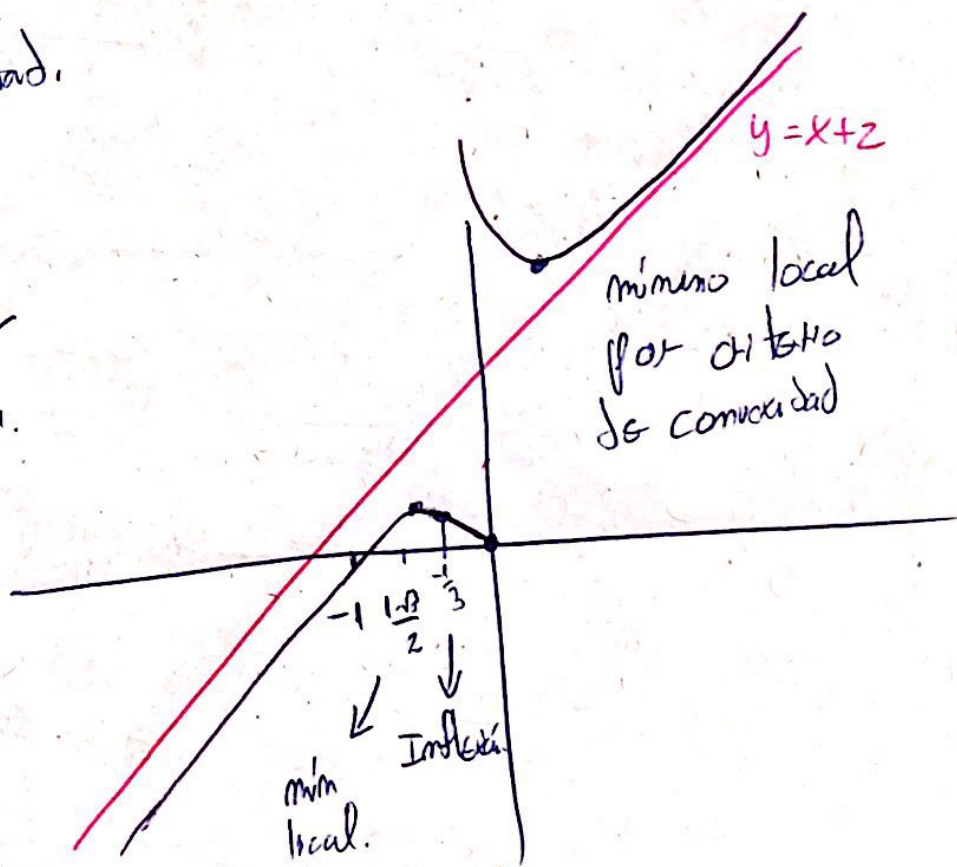 y = x+2
mínimo local
por criterio
de convexidad
-1
1-√3
2
-1
3
Inflexi.
mín
local.